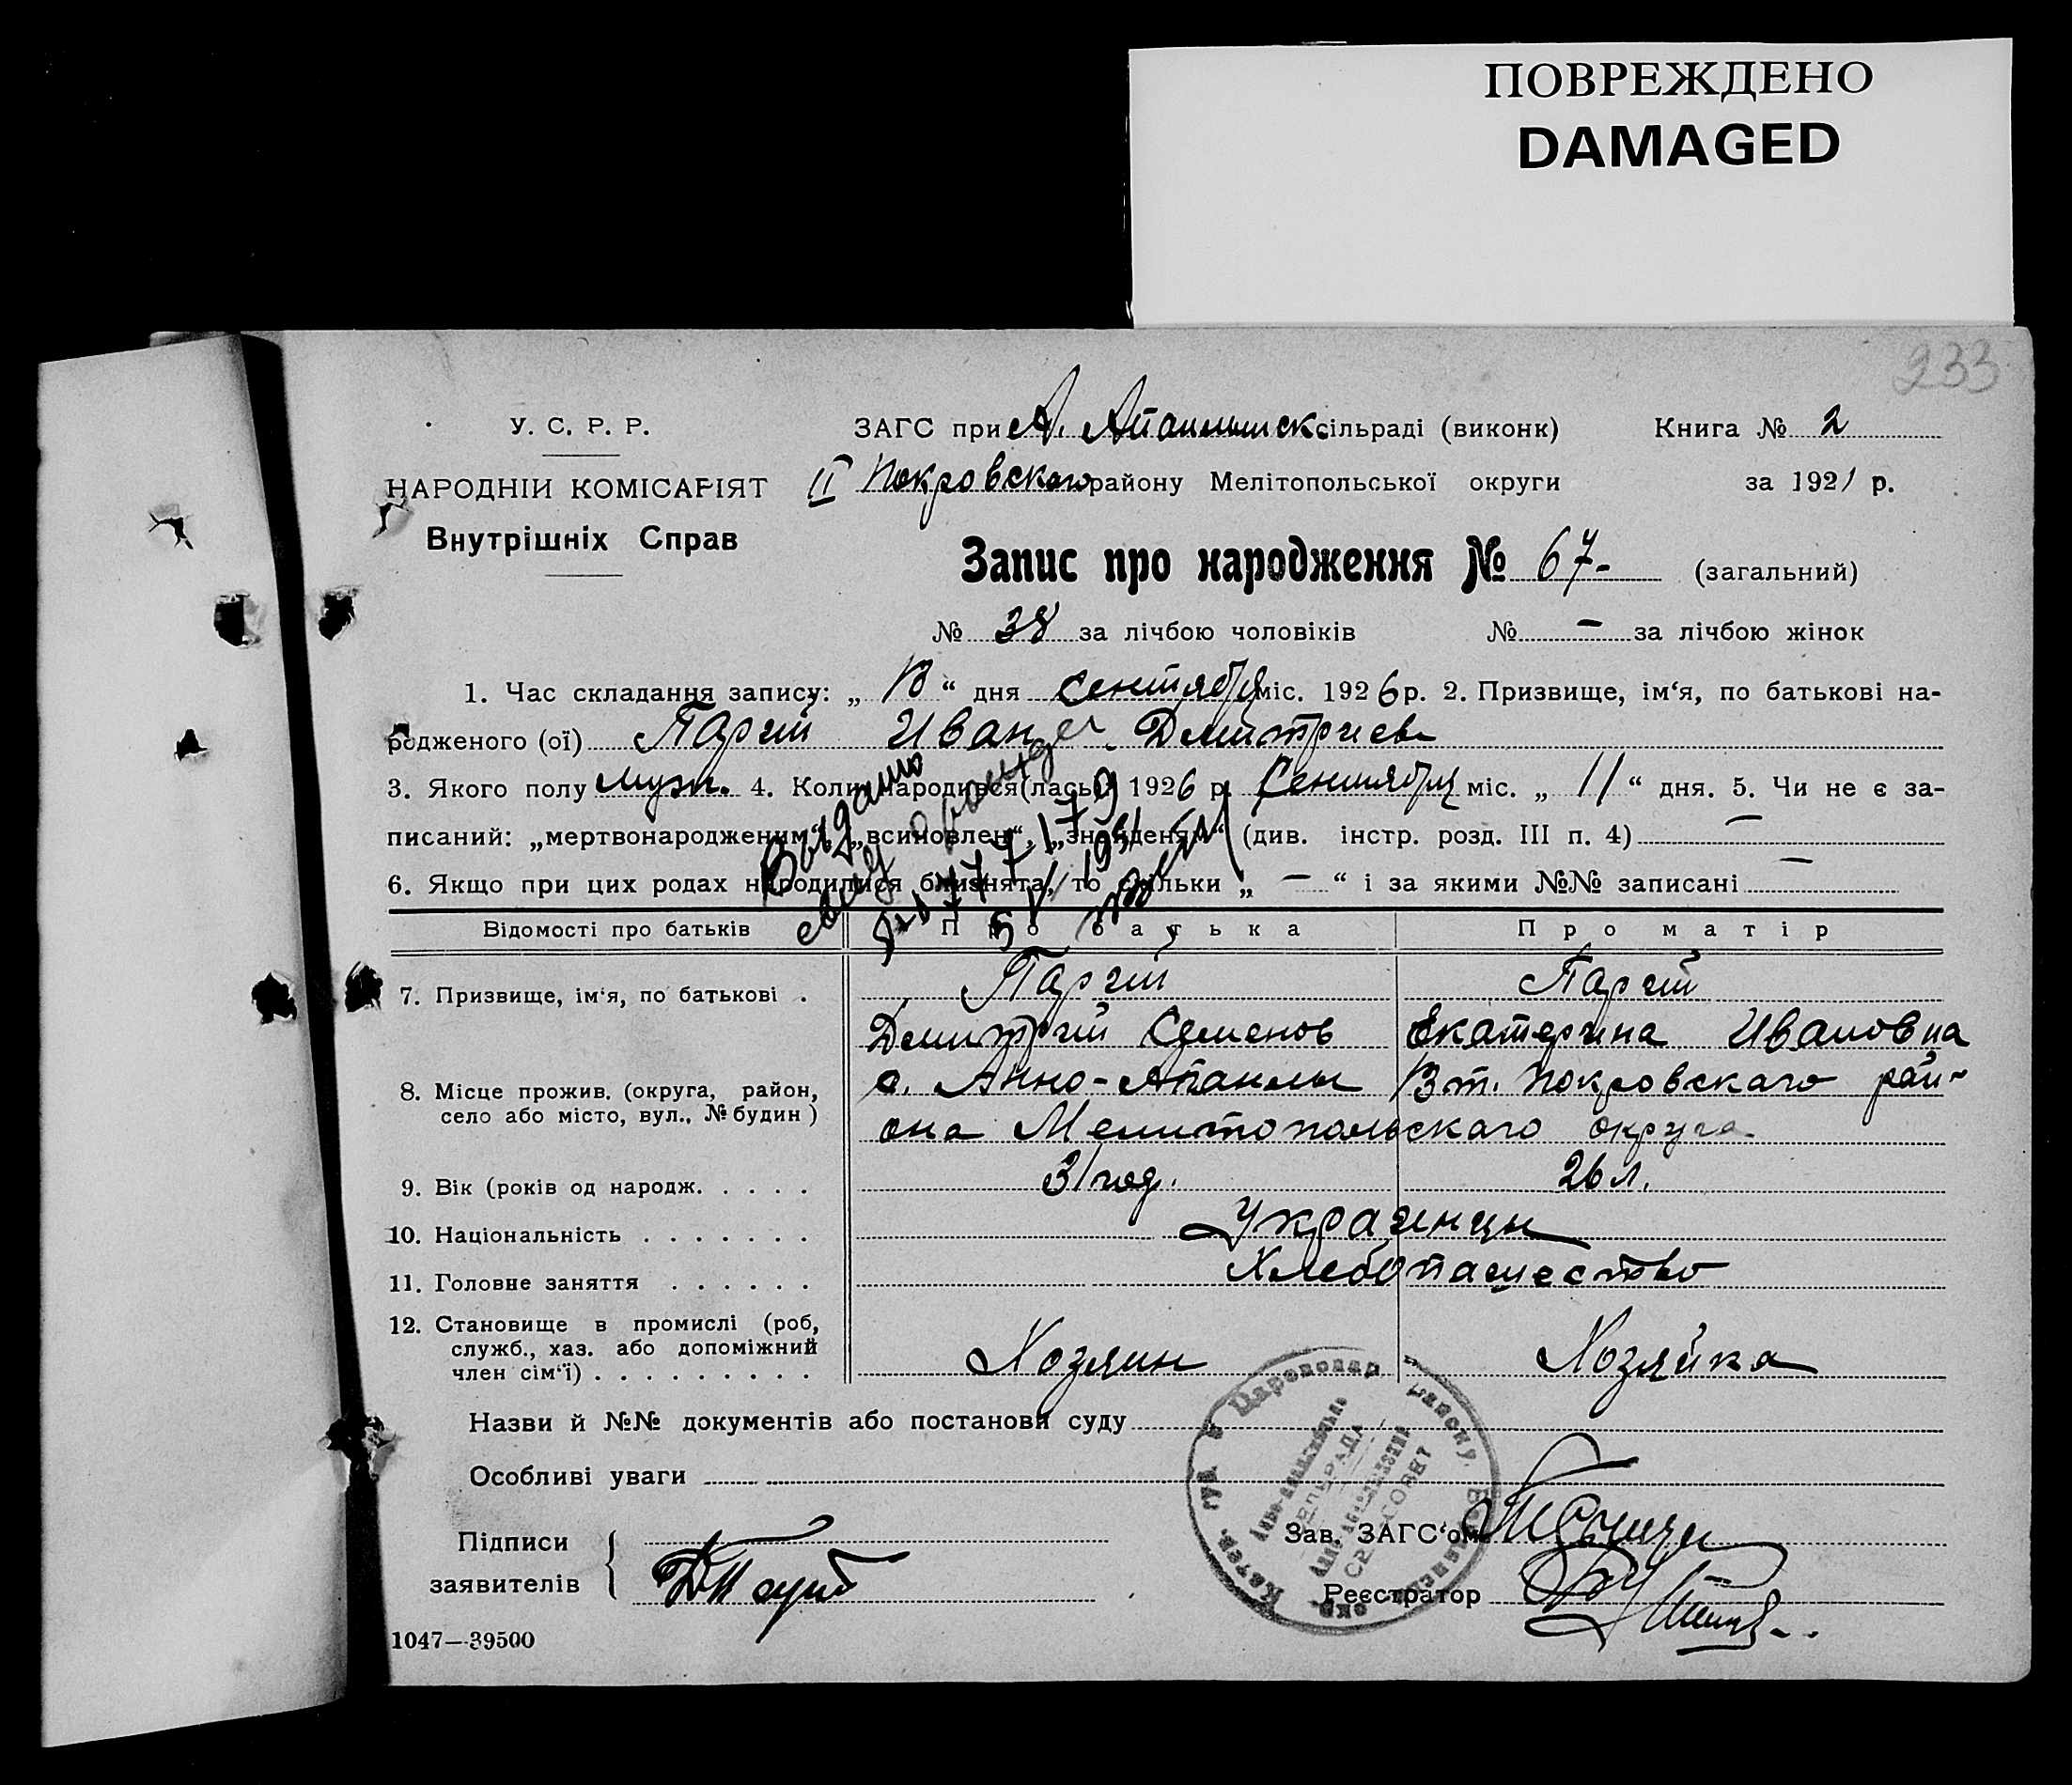 ПОВРЕЖДЕНО
DAMAGED
233
У. С. Р. Р.
НАРОДНІЙ КОМІСАРІЯТ
Внутрішніх Справ
ЗАГС при А. Апанлинск. сільраді (виконк) Книга № 2
II Покровского району Мелітопольської округи за 1921 р.
Запис про народження № 67- (загальний)
№ 38 за лічбою чоловіків № — за лічбою жінок
1. Час складання запису: „ 13 “ дня Сентября міс. 1926 р. 2. Призвище, ім‘я, по батькові на-
родженого (ої) Паргій Иван Дмитриев
3. Якого полу муж. 4. Коли народився(лась) 1926 р. Сентября міс. „ 11 “ дня. 5. Чи не є за-
писаний: „мертвонародженим“, „всиновлен“, „знайденям“ (див. інстр. розд. III п. 4) —
6. Якщо при цих родах народилися близнята, то скільки „ — “ і за якими №№ записані —
Выдано
свид о рожден
5/V 1951
Відомості про батьків Про батька Про матір
7. Призвище, ім‘я, по батькові . Паргий Паргий
Дмитрий Семенов Екатерина Ивановна
8. Місце прожив. (округа, район, село або місто, вул., № будин) с. Анно-Апанлы Вт. Покровскаго рай-
она Мелитопольскаго округа.
9. Вік (років од народж. . . . . 31 год. 26 л.
10. Національність . . . . . . . Украинцы
11. Головне заняття . . . . . . Хлебопашество
12. Становище в промислі (роб,
служб., хаз. або допоміжний
член сім‘ї) . . . . . . . . . . Хозяин Хозяйка
Назви й №№ документів або постанови суду
Особливі уваги
Підписи
заявителів
Зав. ЗАГС‘ом
Реєстратор
СЕЛЬРАДА
СЕЛЬСОВЕТ
1047—39500